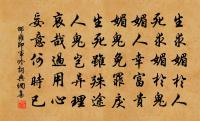 生求媚於人
死求媚於鬼
媚人幸富貴
媚鬼免罪戾
生死雖殊途
人鬼豈異理
哀哉過用心
妄意何時已